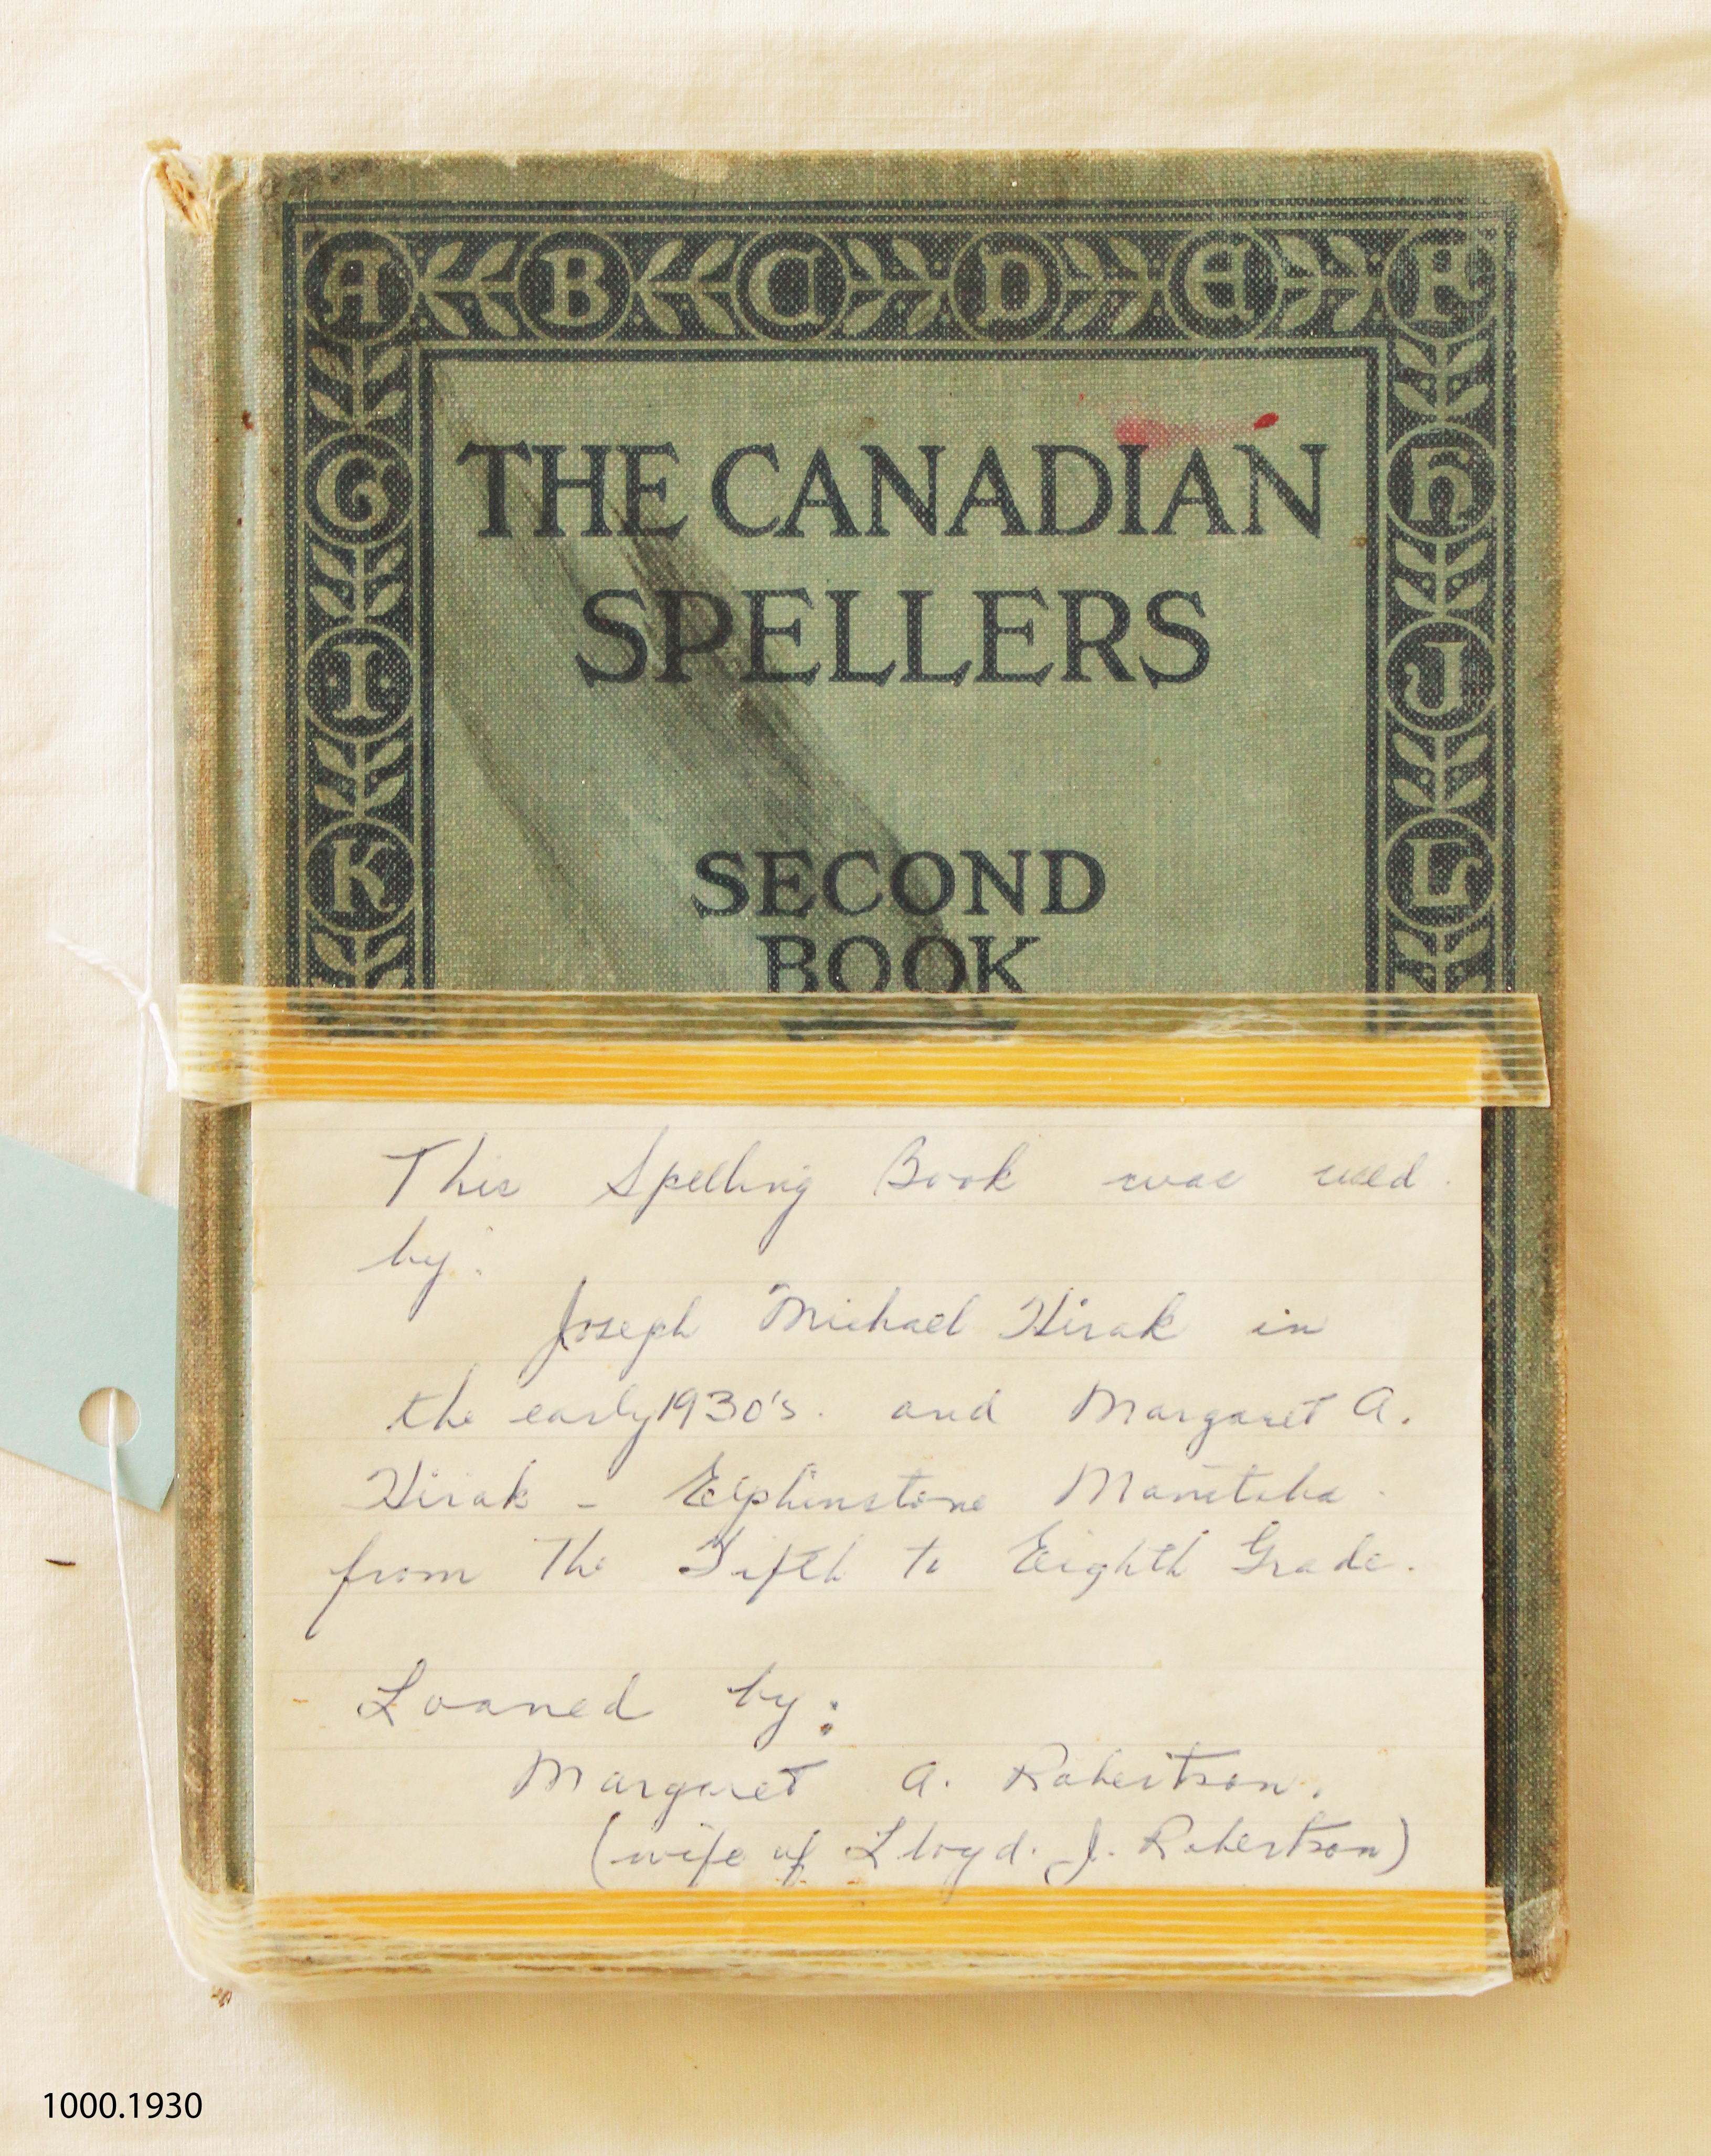 A B C D E F
G H
I J
K L
THE CANADIAN
SPELLERS
SECOND
BOOK
This Spelling Book was used
by:
Joseph Michael Hirak in
the early 1930's. and Margaret A.
Hirak - Elphinstone Manitoba.
from The Fifth to Eighth Grade.
Loaned by:
Margaret A. Robertson.
(wife of Lloyd. J. Robertson)
1000.1930